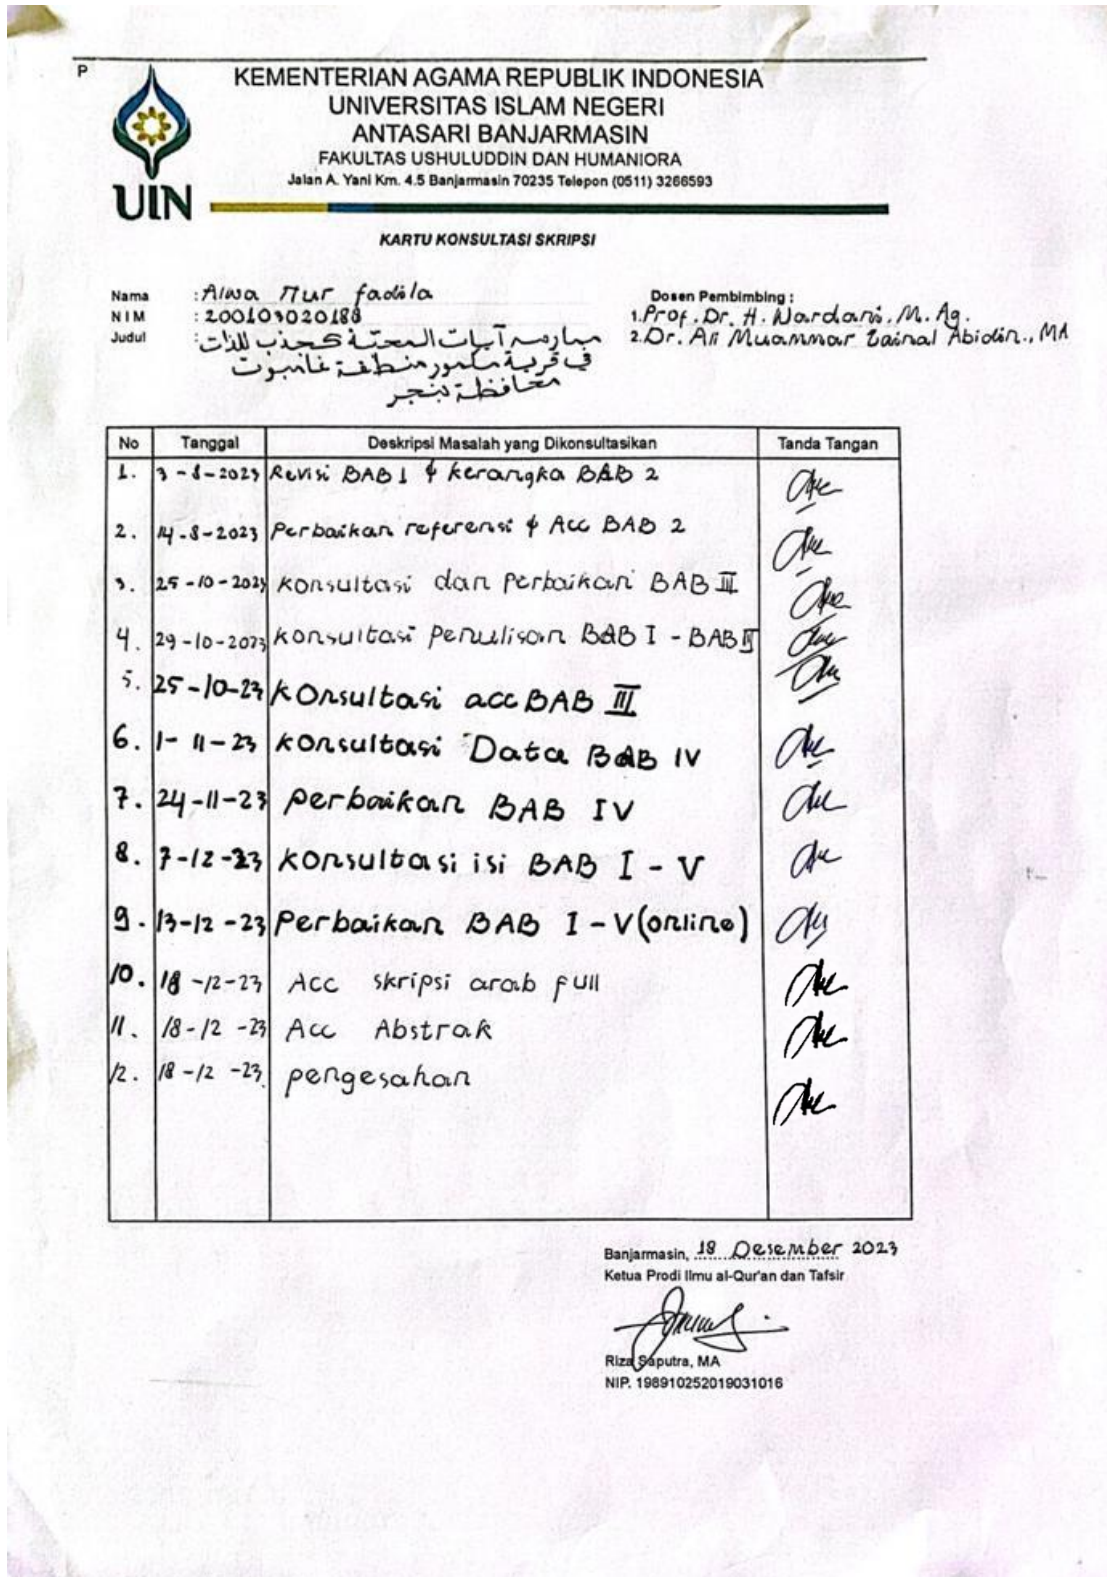 P
KEMENTERIAN AGAMA REPUBLIK INDONESIA
UNIVERSITAS ISLAM NEGERI
ANTASARI BANJARMASIN
FAKULTAS USHULUDDIN DAN HUMANIORA
Jalan A. Yani Km. 4.5 Banjarmasin 70235 Telepon (0511) 3266593
UIN
KARTU KONSULTASI SKRIPSI
Nama : Alwa Nur fadila
NIM : 200103020188
Judul :
آيات المحبّة كجذب للذات
في قرية منطقة غامبوت
محافظة بنجر
Dosen Pembimbing :
1. Prof. Dr. H. Wardani, M. Ag.
2. Dr. Ali Muammar Zainal Abidin., MA
No Tanggal Deskripsi Masalah yang Dikonsultasikan Tanda Tangan
1. 3-8-2023 Revisi BAB 1 & kerangka BAB 2
2. 14-8-2023 Perbaikan referensi & Acc BAB 2
3. 25-10-2023 konsultasi dan perbaikan BAB III
4. 29-10-2023 konsultasi penulisan BAB I - BAB
5. 25-10-23 konsultasi acc BAB III
6. 1-11-23 konsultasi Data BAB IV
7. 24-11-23 perbaikan BAB IV
8. 7-12-23 konsultasi isi BAB I - V
9. 13-12-23 Perbaikan BAB I - V (online)
10. 18-12-23 Acc skripsi arab full
11. 18-12-23 Acc Abstrak
12. 18-12-23 pengesahan
Banjarmasin, 18 Desember 2023
Ketua Prodi Ilmu al-Qur'an dan Tafsir
Riza Saputra, MA
NIP. 198910252019031016